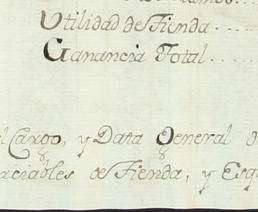 Utilidad de Tienda ....
Ganancia Total .....
el Cargo, y Data General de
aciables de Tienda, y Esq